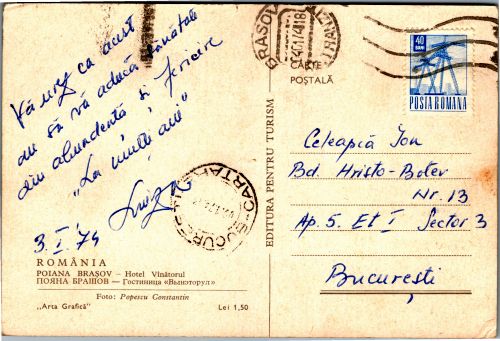 Vă urez ca acest
an să vă aducă sănătate
din abundență și fericire
"La mulți ani"
3.I.74
ROMÂNIA
POIANA BRAȘOV – Hotel Vînătorul
ПОЯНА БРАШОВ — Гостиница «Вынэторул»
Foto: Popescu Constantin
„Arta Grafică"
Lei 1,50
EDITURA PENTRU TURISM
BRAȘOV
CARTE
POȘTALĂ
40
BANI
POSTA ROMANA
Celeapiă Ion
Bd. Hristo-Botev
Nr. 13
Ap. 5. Et I Sector 3
București